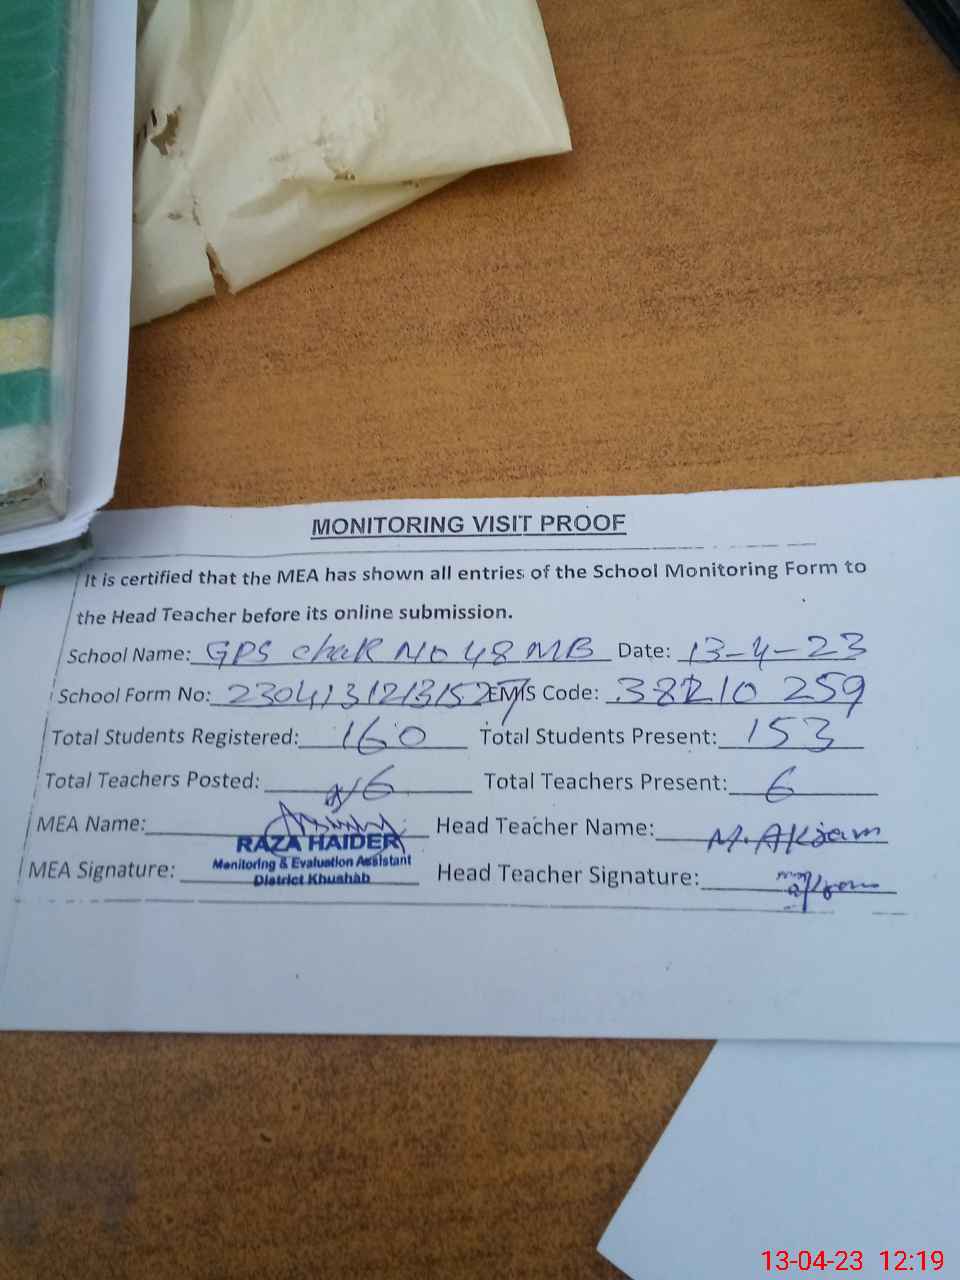 MONITORING VISIT PROOF
It is certified that the MEA has shown all entries of the School Monitoring Form to
the Head Teacher before its online submission.
School Name: GPS chak No 48 MB Date: 13-4-23
School Form No: EMIS Code:
Total Students Registered: 160 Total Students Present: 153
Total Teachers Posted: 6 Total Teachers Present: 6
MEA Name: Head Teacher Name: M. AKram
RAZA HAIDER
Monitoring & Evaluation Assistant
MEA Signature: Head Teacher Signature:
District Khushab
13-04-23 12:19